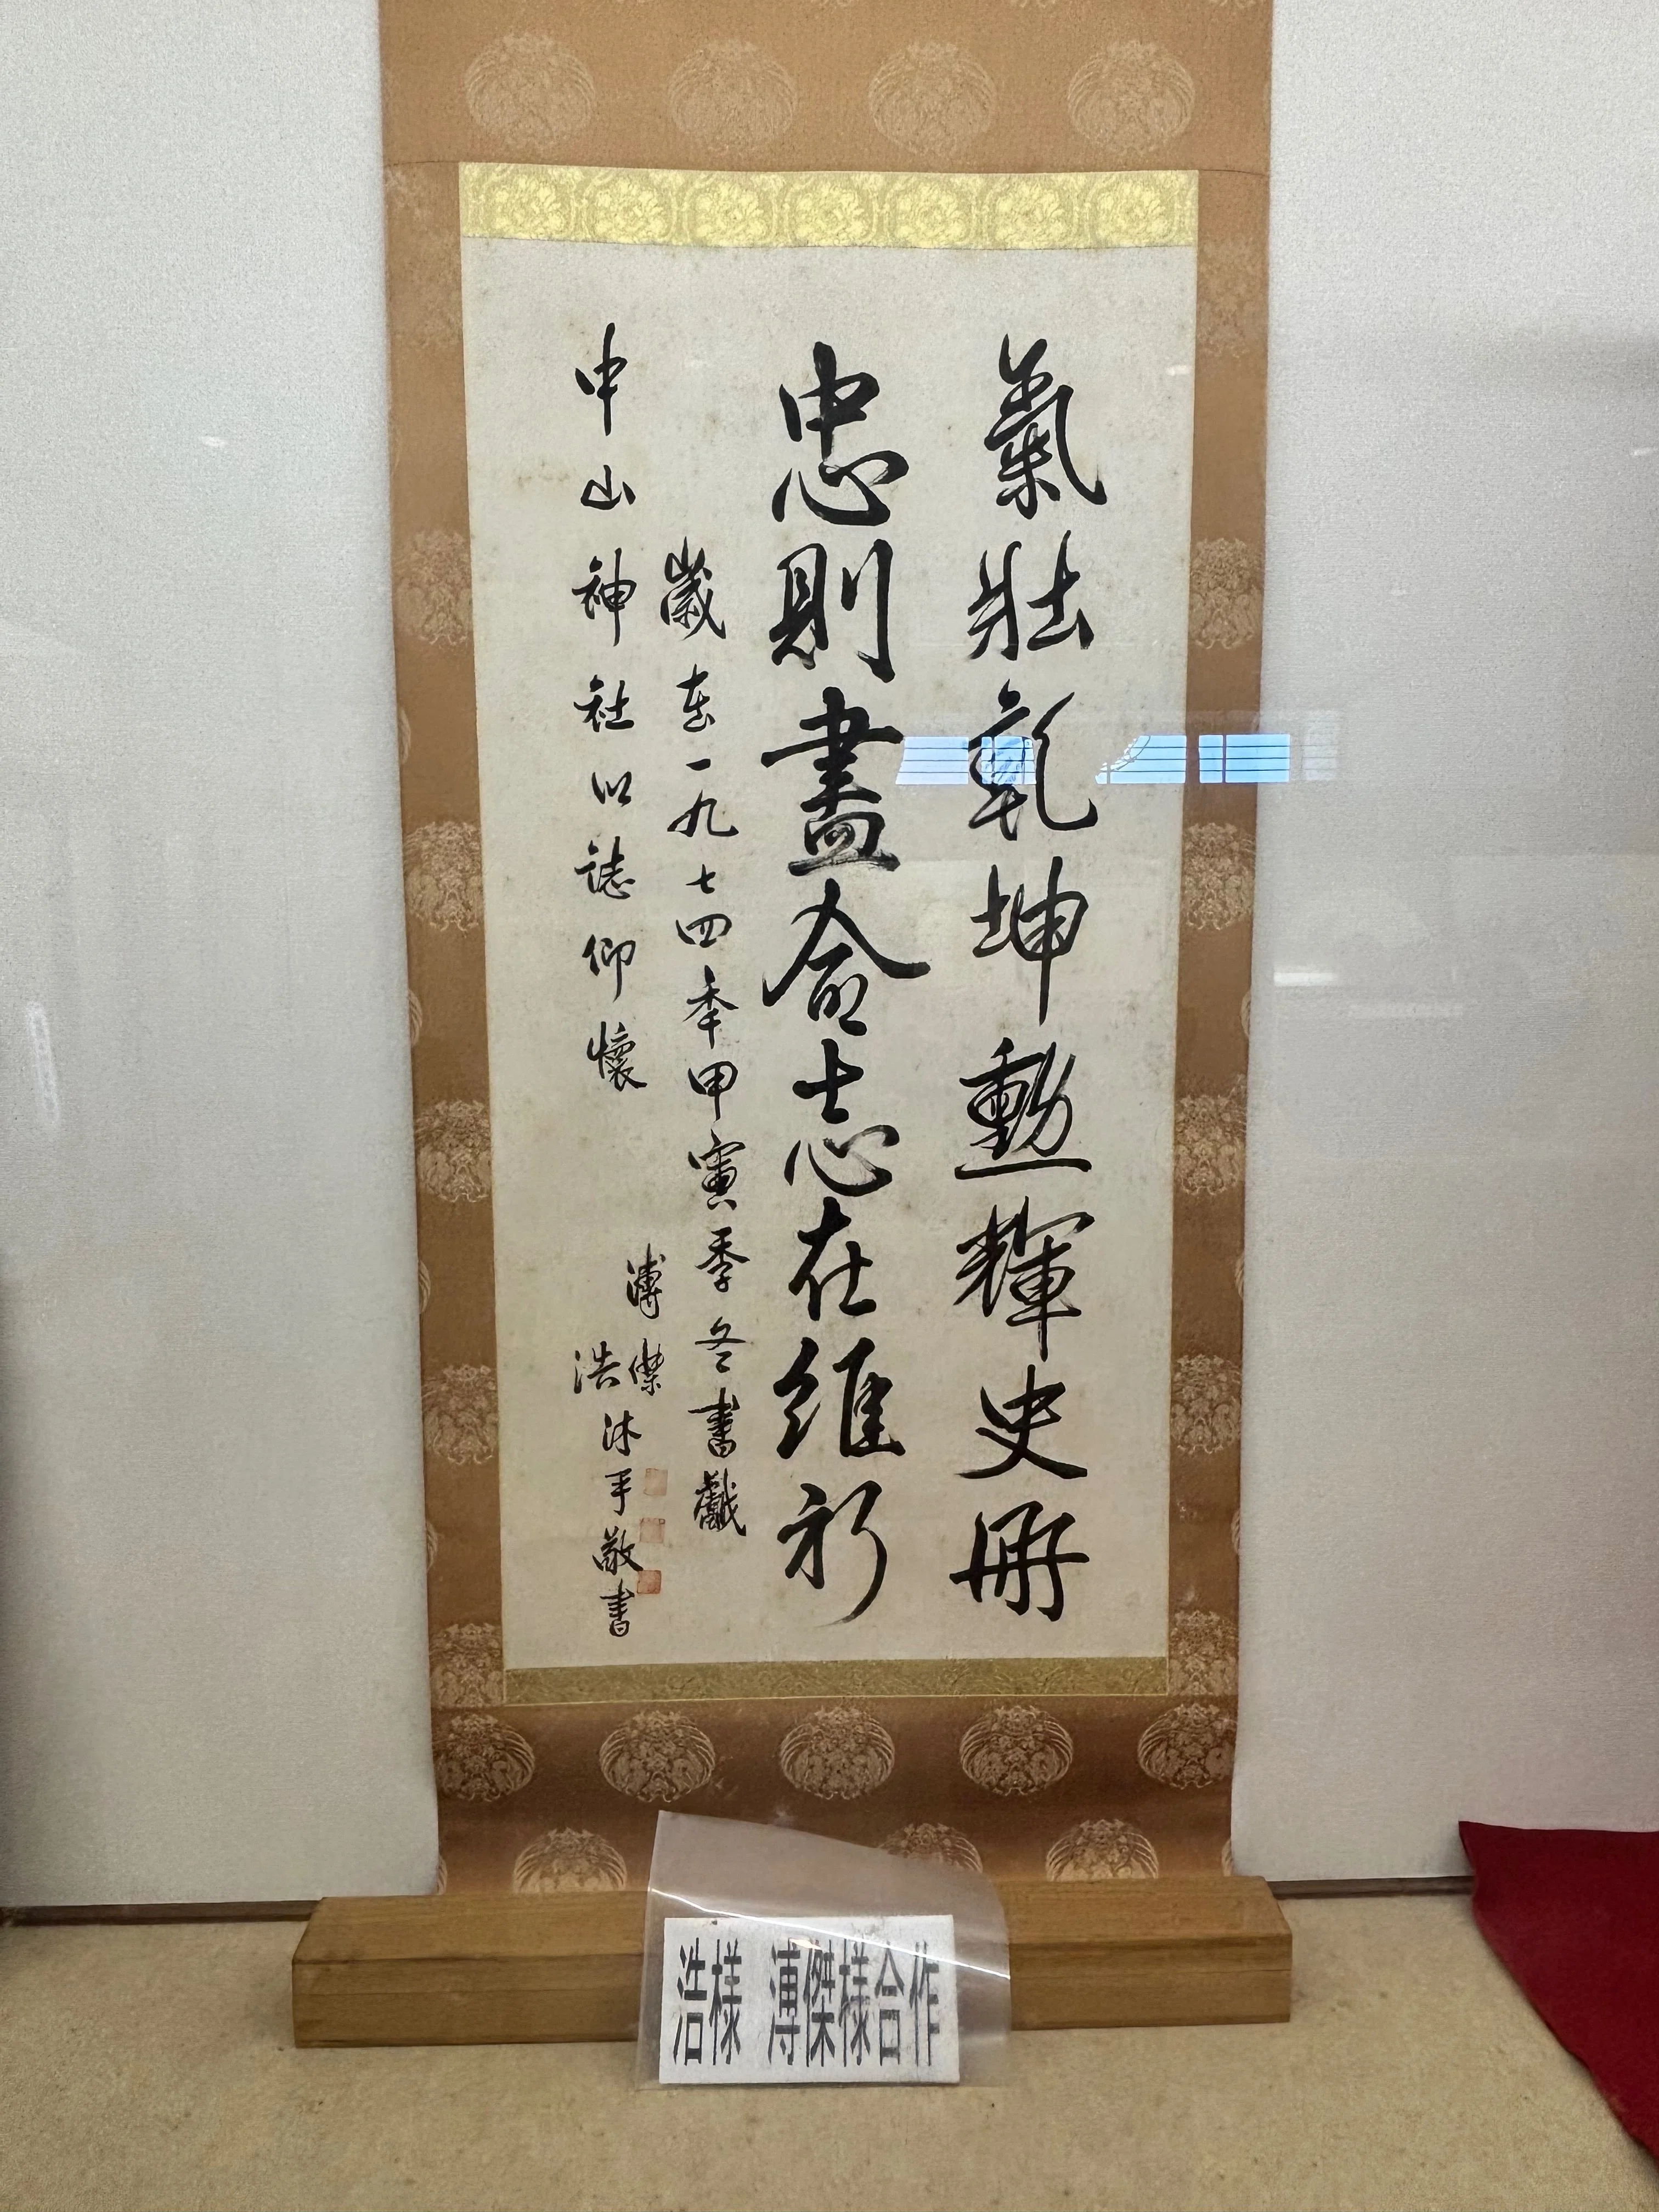 氣壯乾坤勳輝史冊
忠則盡命志在維新
歲在一九七四季甲寅季冬書獻
中山神社以誌仰懷
溥傑
浩
沐手敬書
浩様 溥傑様合作